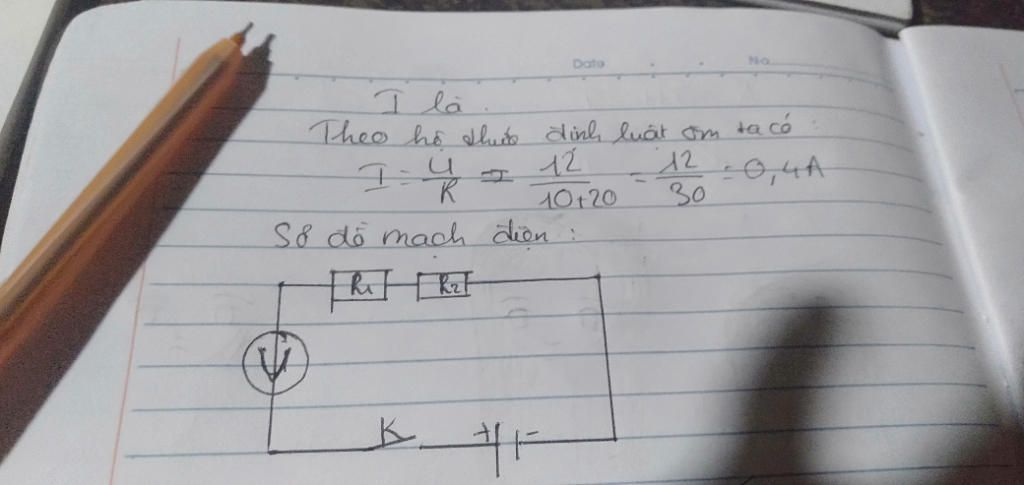 Date No
I là.
Theo hệ thức định luật ôm ta có:
I = U/R = 12/10+20 = 12/30 = 0,4A
Sơ đồ mạch điện:
R1 R2
V
K + -